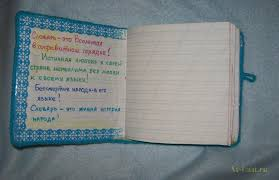 Словарь - это Вселенная
в алфавитном порядке!
Истинная любовь к своей
стране немыслима без любви
к своему языку!
Бессмертие народа - в его
языке!
Словарь - это живая история
народа!